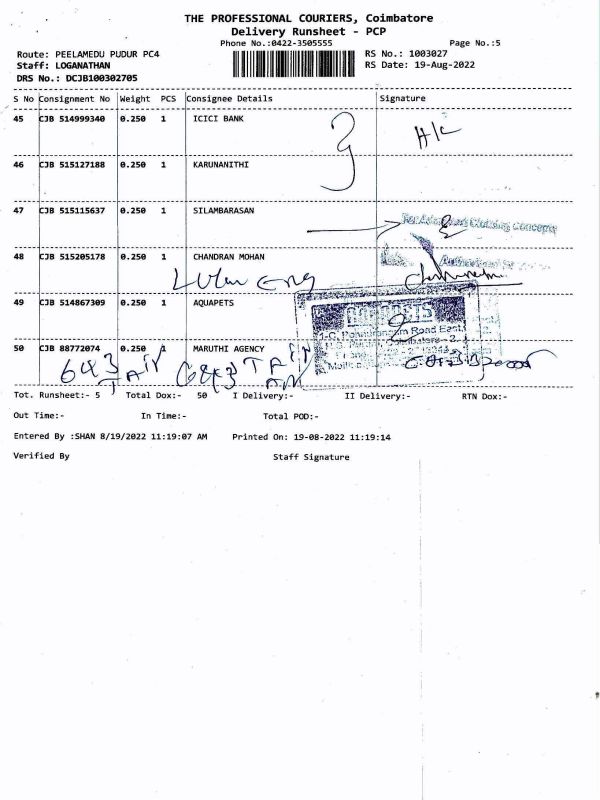 THE PROFESSIONAL COURIERS, Coimbatore
Delivery Runsheet - PCP
Phone No.:0422-3505555
Page No.:5
Route: PEELAMEDU PUDUR PC4
RS No.: 1003027
Staff: LOGANATHAN
RS Date: 19-Aug-2022
DRS No.: DCJB100302705
S No Consignment No Weight PCS Consignee Details Signature
45 CJB 514999340 0.250 1 ICICI BANK H/C
46 CJB 515127188 0.250 1 KARUNANITHI
47 CJB 515115637 0.250 1 SILAMBARASAN
48 CJB 515205178 0.250 1 CHANDRAN MOHAN
49 CJB 514867309 0.250 1 AQUAPETS
Road East
50 CJB 88772074 0.250 1 MARUTHI AGENCY
Tot. Runsheet:- 5 Total Dox:- 50 I Delivery:- II Delivery:- RTN Dox:-
Out Time:- In Time:- Total POD:-
Entered By :SHAN 8/19/2022 11:19:07 AM Printed On: 19-08-2022 11:19:14
Verified By Staff Signature